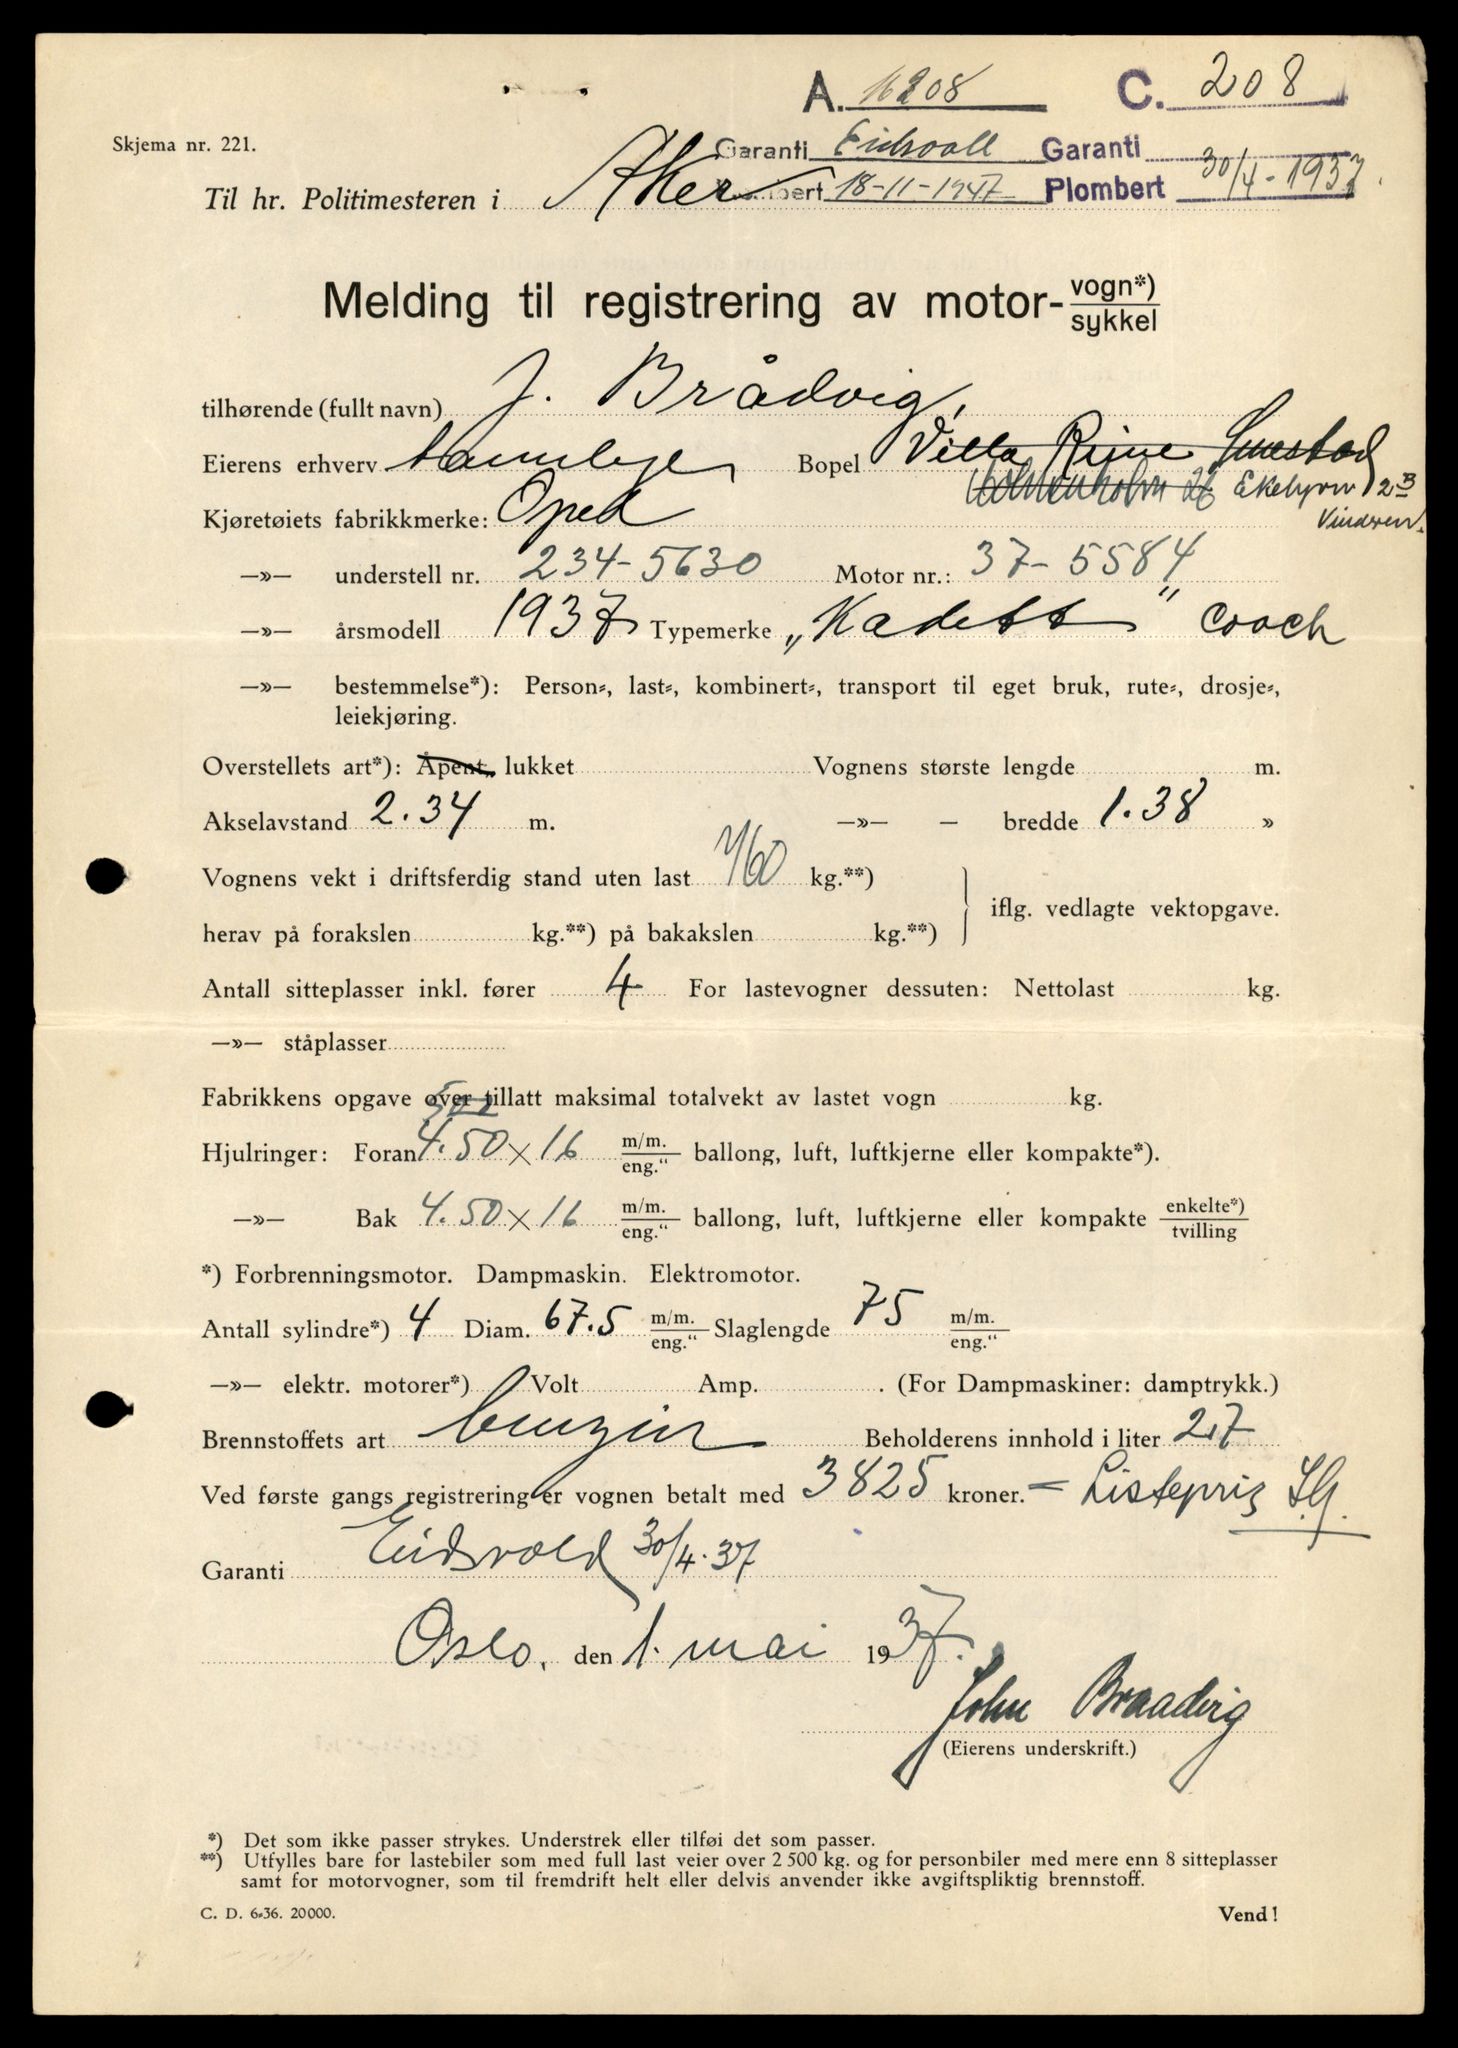 A. 16208 C. 208
Skjema nr. 221.
Garanti Eidsvoll Garanti
Til hr. Politimesteren i Aker Plombert 18-11-1947 Plombert 30/4-1937.
Melding til registrering av motor- vogn*) / sykkel
tilhørende (fullt navn) J. Brådvig,
Eierens erhverv tannlege, Bopel Villa Rijne Smestad
26 Ekelyvn 2B
Vinderen.
Kjøretøiets fabrikkmerke: Opel
—»— understell nr. 234-5630 Motor nr.: 37-5584
—»— årsmodell 1937 Typemerke „Kadett" coach
—»— bestemmelse*): Person-, last-, kombinert-, transport til eget bruk, rute-, drosje-,
leiekjøring.
Overstellets art*): Åpent, lukket Vognens største lengde m.
Akselavstand 2.34 m. —»— — bredde 1.38 »
Vognens vekt i driftsferdig stand uten last 760 kg.**)
iflg. vedlagte vektopgave.
herav på forakslen kg.**) på bakakslen kg.**)
Antall sitteplasser inkl. fører 4 For lastevogner dessuten: Nettolast kg.
—»— ståplasser
Fabrikkens opgave over tillatt maksimal totalvekt av lastet vogn kg.
Hjulringer: Foran 4.50 × 16 m/m. / eng." ballong, luft, luftkjerne eller kompakte*).
—»— Bak 4.50 × 16 m/m. / eng." ballong, luft, luftkjerne eller kompakte enkelte*) / tvilling
*) Forbrenningsmotor. Dampmaskin. Elektromotor.
Antall sylindre*) 4 Diam. 67.5 m/m. / eng." Slaglengde 75 m/m. / eng."
—»— elektr. motorer*) Volt Amp. . (For Dampmaskiner: damptrykk.)
Brennstoffets art benzin Beholderens innhold i liter 27
Ved første gangs registrering er vognen betalt med 3825 kroner. = Listepris
Garanti Eidsvold 30/4.37
Oslo, den 1. mai 1937.
John Braadvig
(Eierens underskrift.)
*) Det som ikke passer strykes. Understrek eller tilføi det som passer.
**) Utfylles bare for lastebiler som med full last veier over 2 500 kg. og for personbiler med mere enn 8 sitteplasser
samt for motorvogner, som til fremdrift helt eller delvis anvender ikke avgiftspliktig brennstoff.
C. D. 6-36. 20000. Vend!